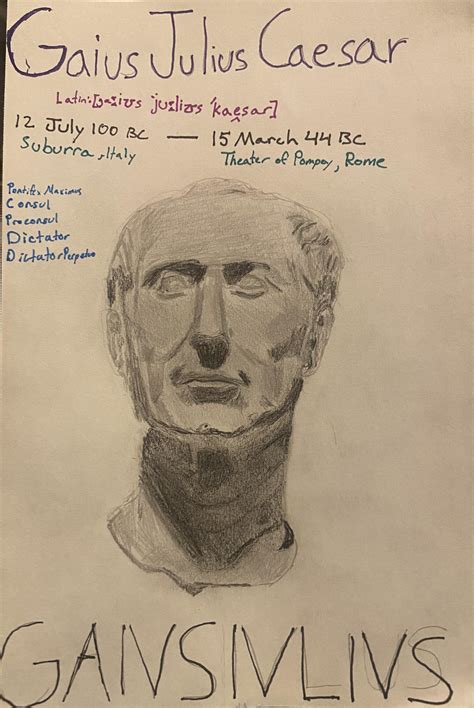 Gaius Julius Caesar
Latin:[gaiʊs juːliʊs ˈkaesar]
12 July 100 BC — 15 March 44 BC
Suburra, Italy Theater of Pompey, Rome
Pontifex Maximus
Consul
Proconsul
Dictator
Dictator Perpetuo
GAIVSIVLIVS